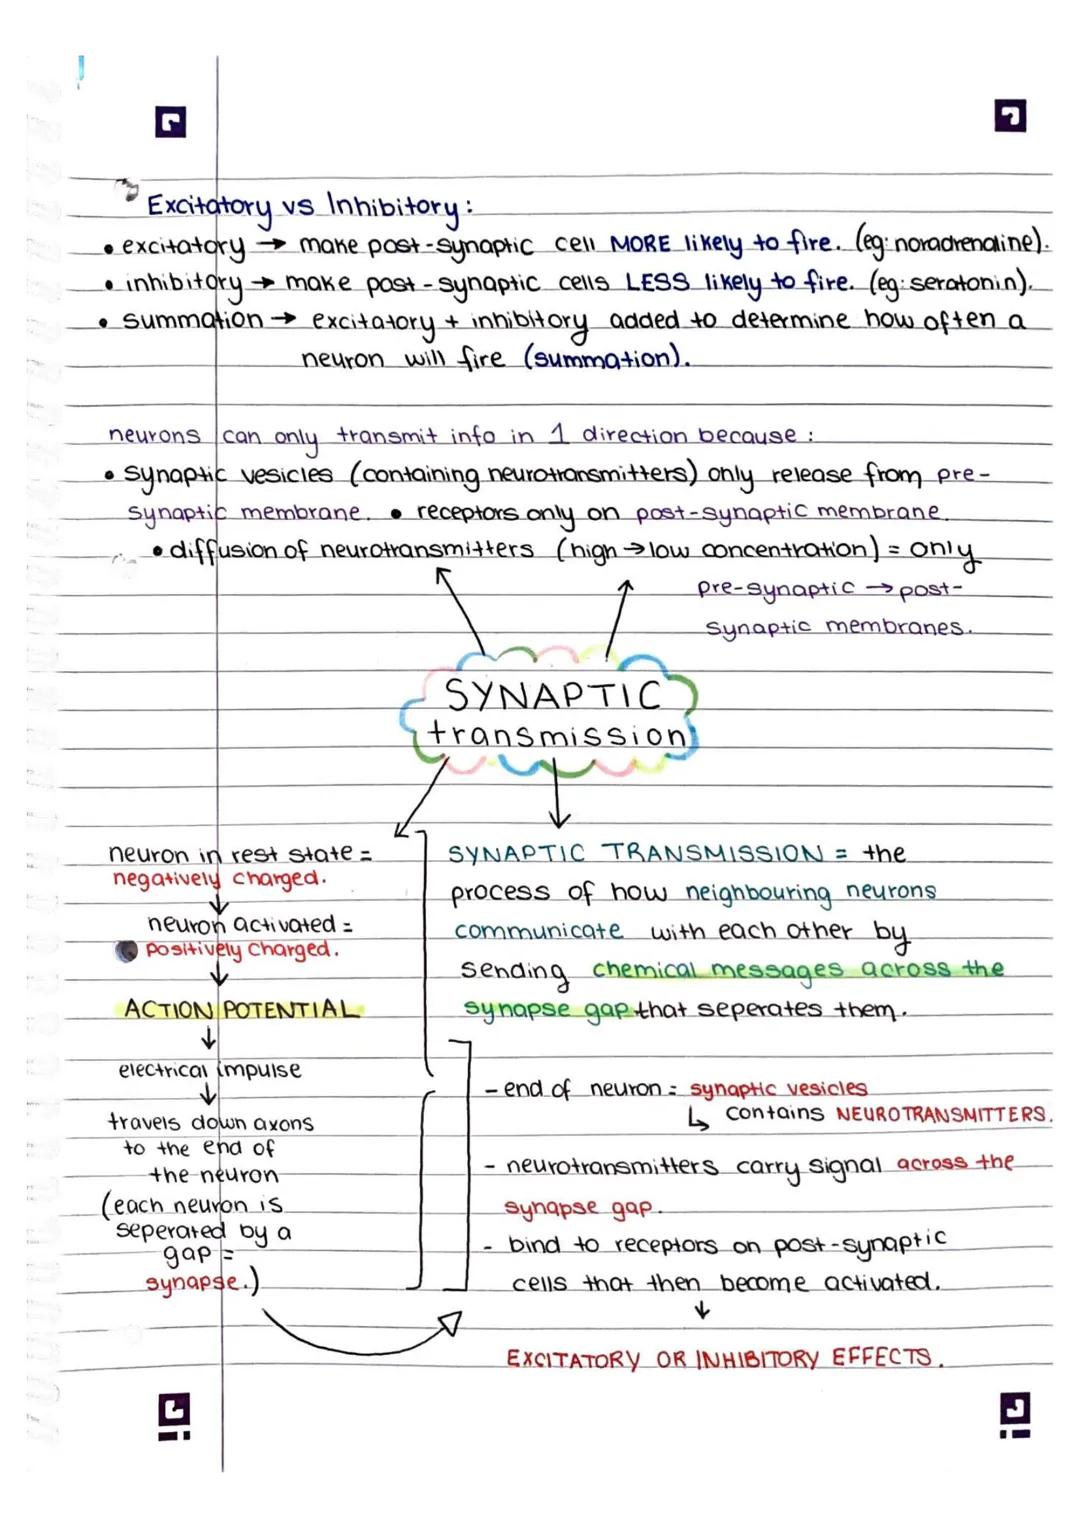 Excitatory vs Inhibitory:
• excitatory → make post-synaptic cell MORE likely to fire. (eg: noradrenaline).
• inhibitory → make post-synaptic cells LESS likely to fire. (eg: seratonin).
• summation → excitatory + inhibitory added to determine how often a
neuron will fire (summation).
neurons can only transmit info in 1 direction because:
• synaptic vesicles (containing neurotransmitters) only release from pre-
synaptic membrane. • receptors only on post-synaptic membrane.
• diffusion of neurotransmitters (high → low concentration) = only
pre-synaptic → post-
synaptic membranes.
SYNAPTIC
transmission
neuron in rest state =
negatively charged.
↓
neuron activated =
positively charged.
↓
ACTION POTENTIAL
↓
electrical impulse
↓
travels down axons
to the end of
the neuron
(each neuron is
seperated by a
gap =
synapse.)
SYNAPTIC TRANSMISSION = the
process of how neighbouring neurons
communicate with each other by
sending chemical messages across the
synapse gap that seperates them.
- end of neuron = synaptic vesicles
↳ contains NEUROTRANSMITTERS.
- neurotransmitters carry signal across the
synapse gap.
- bind to receptors on post-synaptic
cells that then become activated.
↓
EXCITATORY OR INHIBITORY EFFECTS.